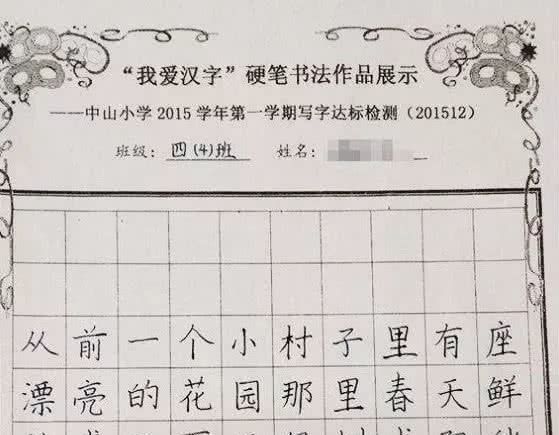 “我爱汉字”硬笔书法作品展示
——中山小学2015学年第一学期写字达标检测（201512）
班级：四(4)班 姓名：
从前一个小村子里有座
漂亮的花园那里春天鲜